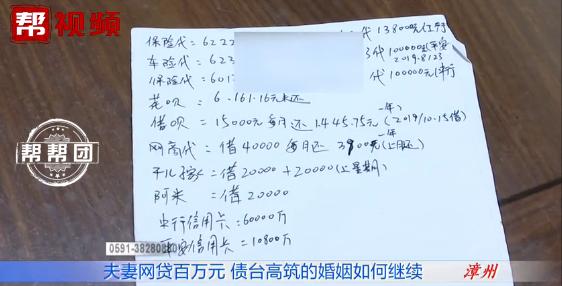 帮视频
保险代=622 代 13800元(工行
车险代=623 代100000元(平安
2019.8.123
代100000元(中行
花呗 = 6.161.16元未还
借呗 = 15000元每月还1.445.75元(2019/10.15借)
一年
网商代=借40000每月还3900元(上月还)
一年
=借20000+20000(上星期)
阿米 =借20000
信用卡=60000万
信用卡=10800万
帮帮团
0591-38280
夫妻网贷百万元 债台高筑的婚姻如何继续
漳州